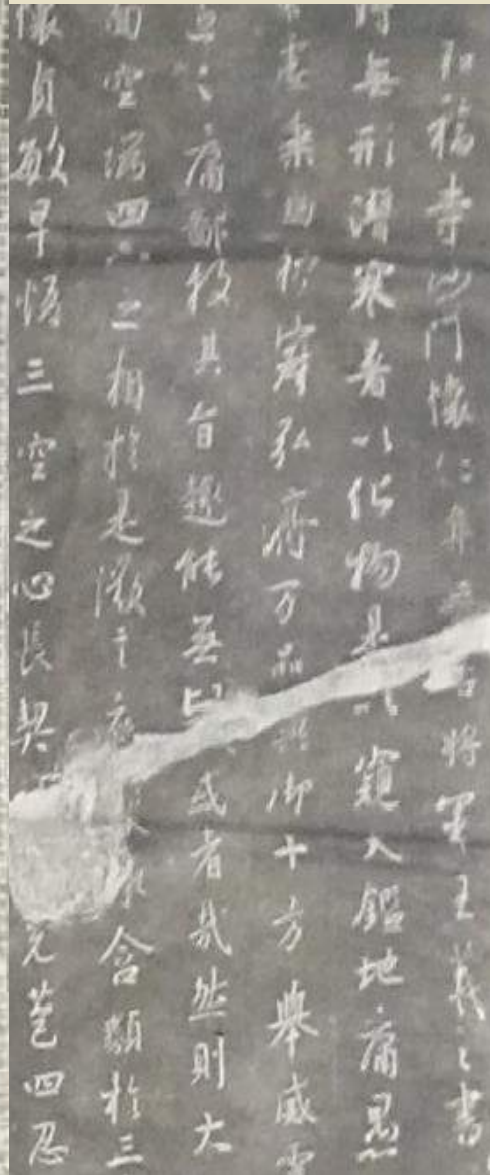 福寺沙門懷仁集右將軍王羲之書
時無形潛寒暑以化物是以窺天鑑地庸愚
虛乘幽控寂弘濟万品典御十方舉威靈
區々庸鄙投其旨趣能無疑惑者哉然則大
空端四八之相於是微言廣被拯含類於三
懷貞敏早悟三空之心長契先苞四忍